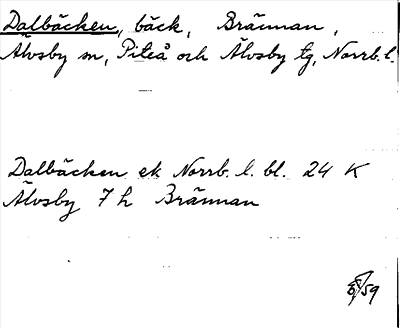 Dalbäcken, bäck, Brännan,
Älvsby sn, Piteå och Älvsby tg, Norrb. l.
Dalbäcken ek Norrb. l. bl. 24 K
Älvsby 7 h Brännan
/59